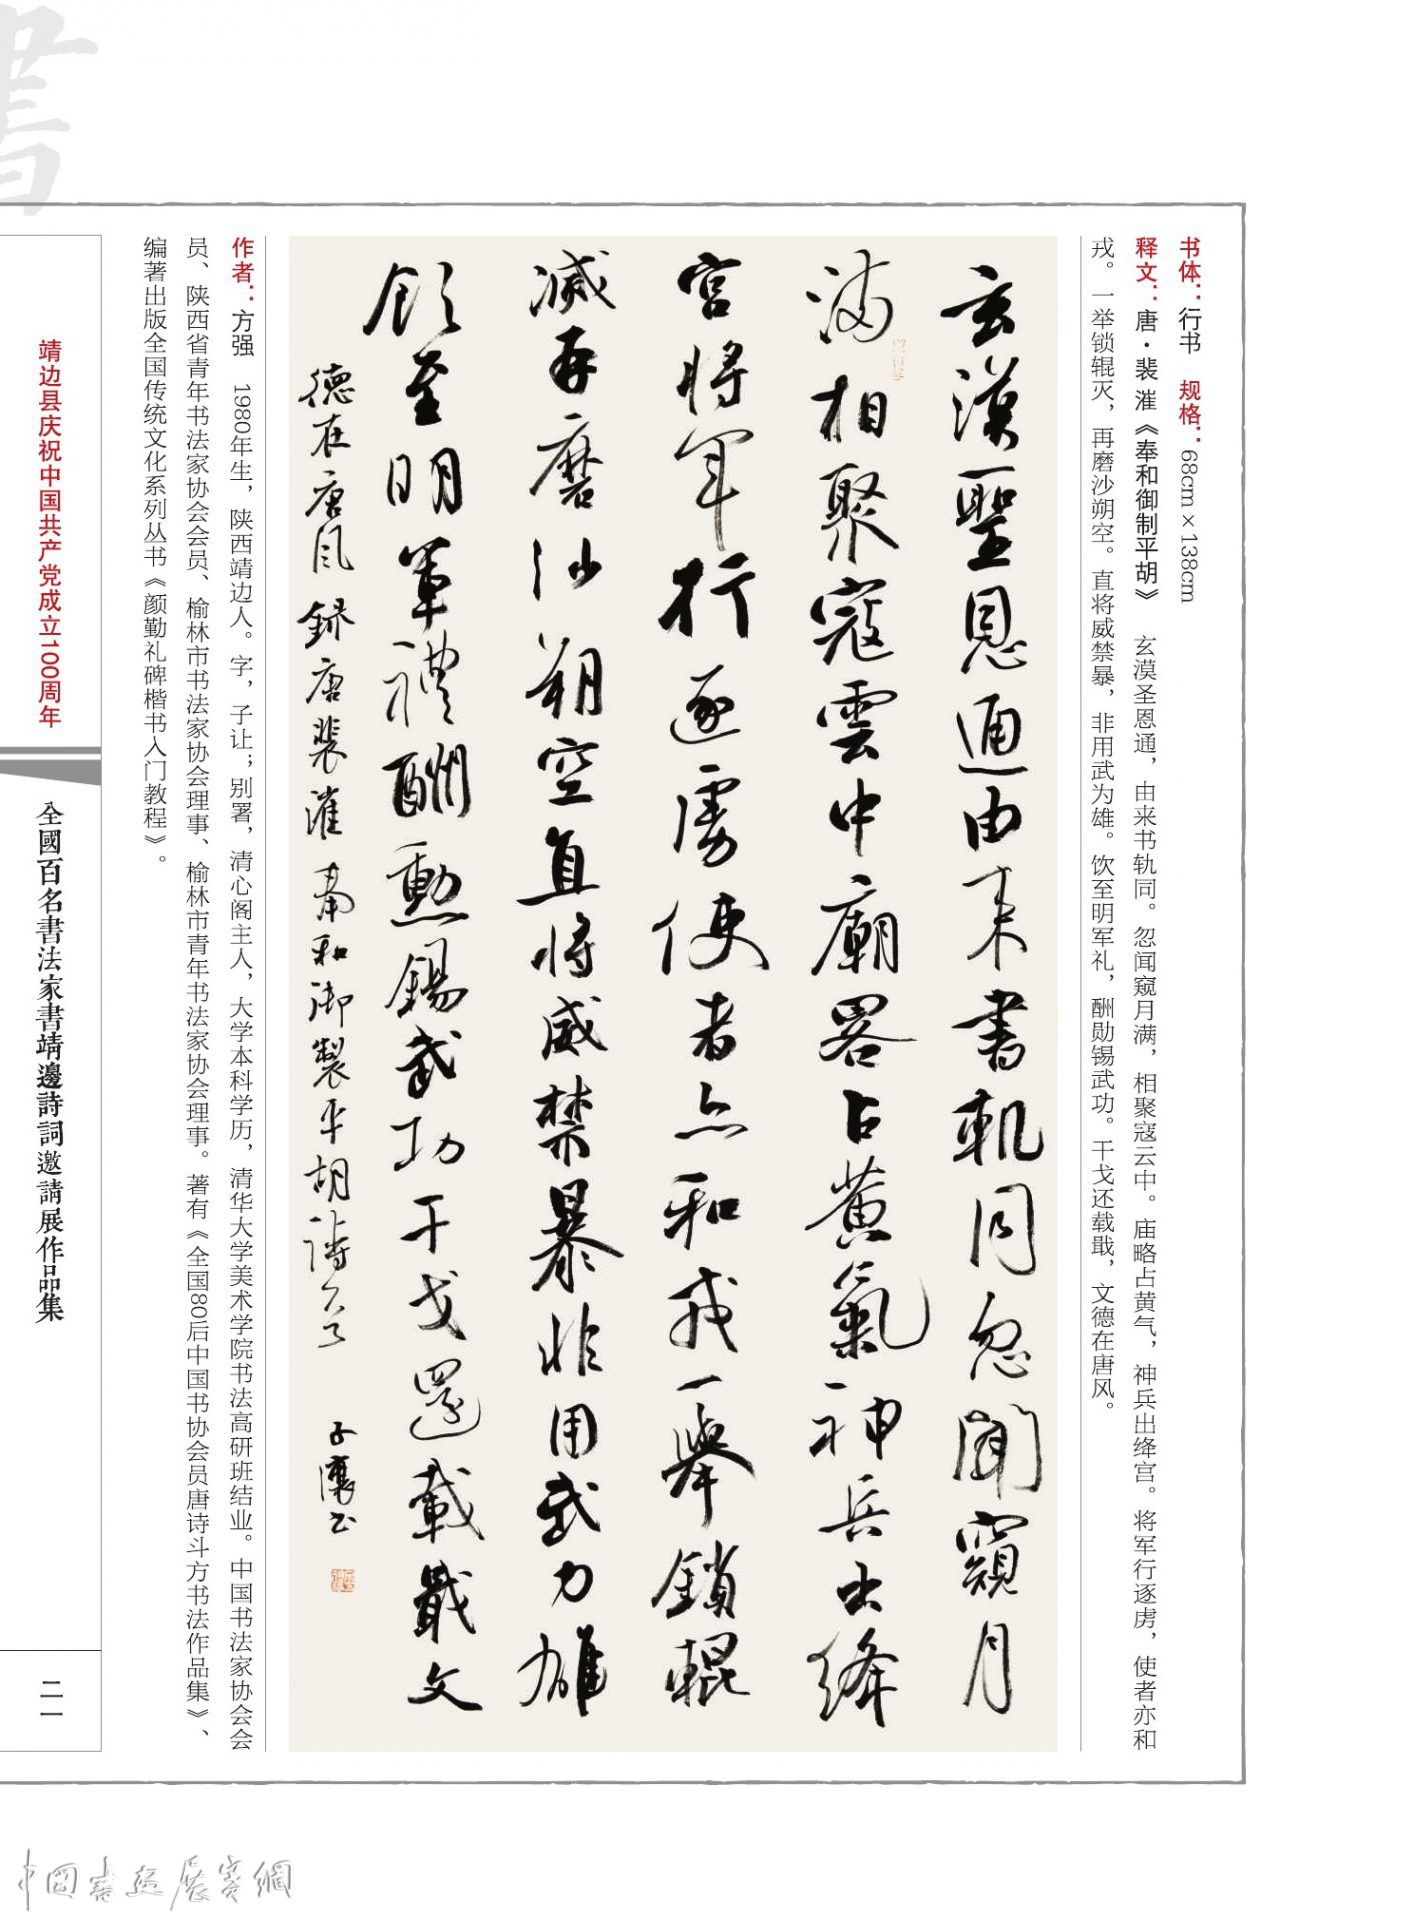 書
书体：行书　规格：68cm×138cm
释文：唐·裴漼《奉和御制平胡》　玄漠圣恩通，由来书轨同。忽闻窥月满，相聚寇云中。庙略占黄气，神兵出绛宫。将军行逐虏，使者亦和
戎。一举锁辊灭，再磨沙朔空。直将威禁暴，非用武为雄。饮至明军礼，酬勋锡武功。干戈还载戢，文德在唐风。
玄漠聖恩通由来書軌同忽聞窺月
满相聚寇雲中廟畧占黄氣神兵出絳
宮將军行逐虜使者亦和戎一舉鎖輥
滅再磨沙朔空直将威禁暴非用武力雄
飲至明軍禮酬勲錫武功干戈還載戢文
德在唐风 録唐裴漼奉和御製平胡诗一首 子讓书
作者：方强　1980年生，陕西靖边人。字，子让；别署，清心阁主人，大学本科学历，清华大学美术学院书法高研班结业。中国书法家协会会
员、陕西省青年书法家协会会员、榆林市书法家协会理事、榆林市青年书法家协会理事。著有《全国80后中国书协会员唐诗斗方书法作品集》、
编著出版全国传统文化系列丛书《颜勤礼碑楷书入门教程》。
靖边县庆祝中国共产党成立100周年
全國百名書法家書靖邊詩詞邀請展作品集
二一
中國書畫展賽網